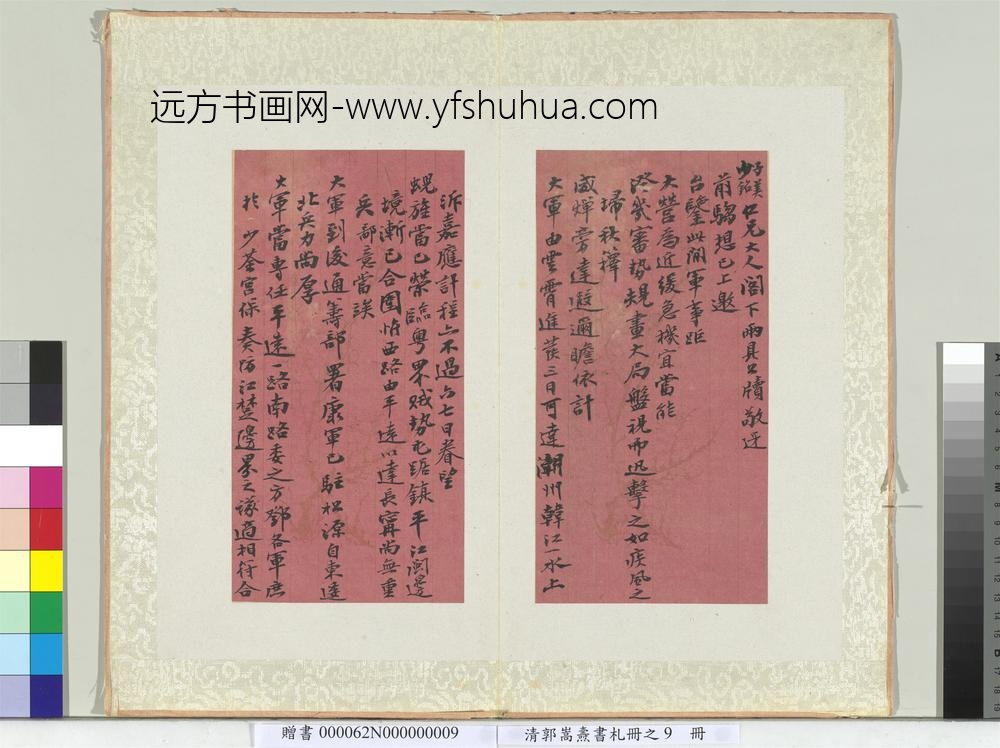 远方书画网-www.yfshuhua.com
子美
少銘仁兄大人閣下兩具公牘敬迓
前騶想已上邀
台鑒此間軍事距
大營為近緩急機宜當能
審勢規畫大局盤視而迅擊之如疾風之
掃秋蘀
威燀旁達遐邇瞻依計
大軍由雲霄進發三日可達潮州韓江一水上
泝嘉應計程亦不過六七日眷望
蜺旌當已榮臨粵界賊勢屯踞鎮平江閩邊
境漸已合圍惟西路由平遠以達長甯尚無重
兵鄙意當俟
大軍到後通籌部署康軍已駐松源自東達
北兵力尚厚
大軍當專任平遠一路南路委之方鄧各軍庶
於少荃宮保奏陌江楚邊界之議適相符合
贈書 000062N000000009
清郭嵩燾書札冊之 9 冊